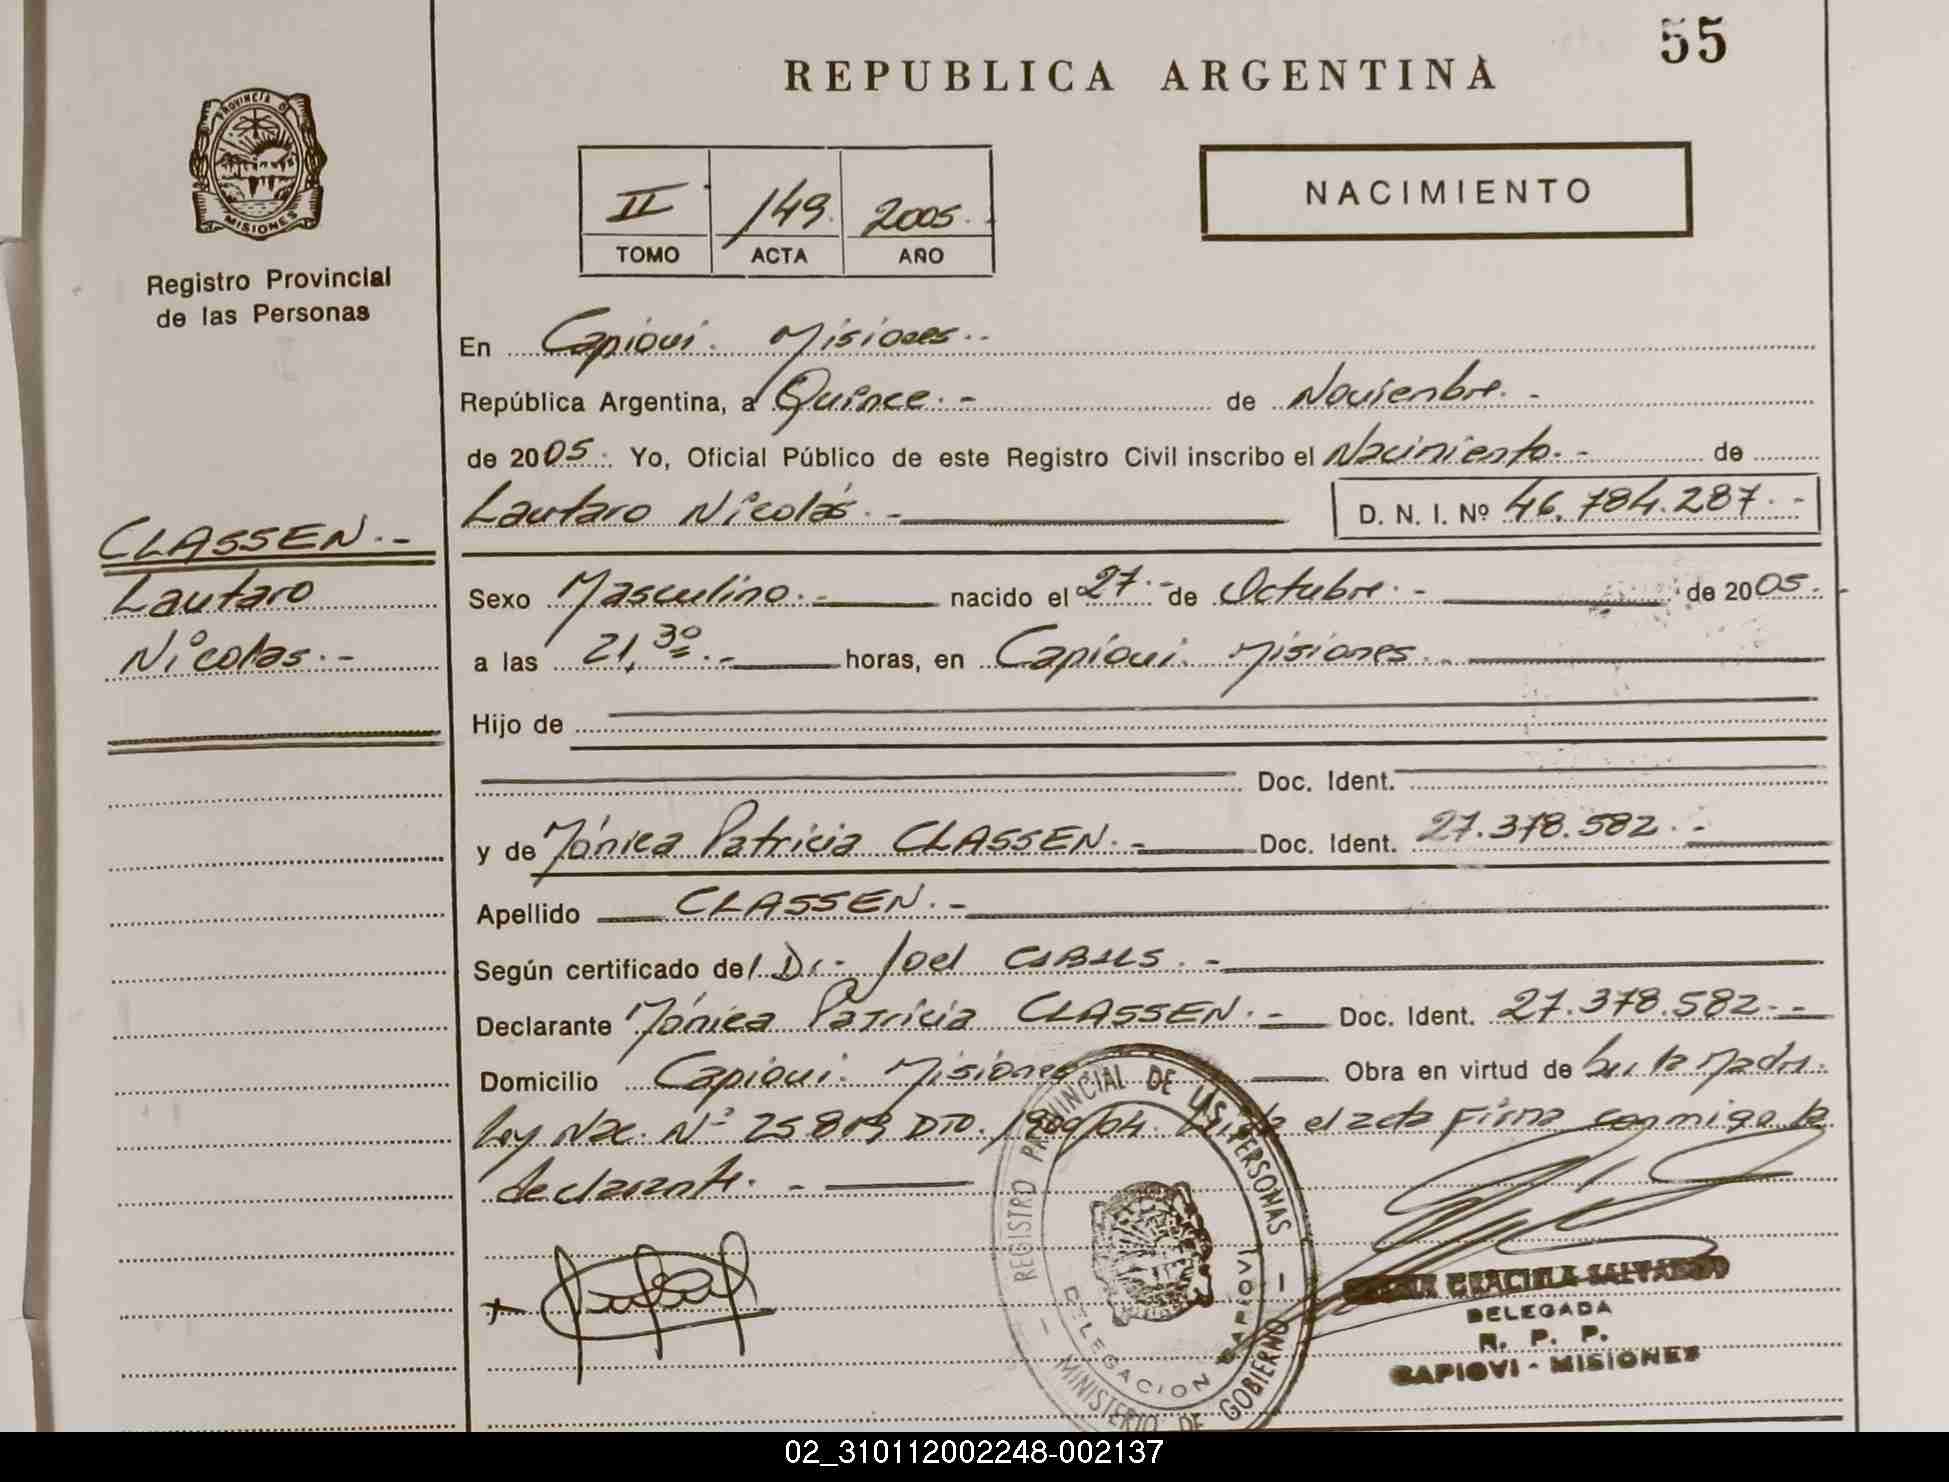 55
REPUBLICA ARGENTINA
PROVINCIA DE
MISIONES
Registro Provincial
de las Personas
II 149. 2005.
TOMO ACTA AÑO
NACIMIENTO
En Capiovi. Misiones.-
República Argentina, a Quince.- de Noviembre.-
de 2005. Yo, Oficial Público de este Registro Civil inscribo el Nacimiento.- de
Lautaro Nicolás.- D. N. I. Nº 46.784.287.-
CLASSEN.-
Lautaro
Nicolas.-
Sexo Masculino.- nacido el 27.- de Octubre.- de 2005.-
a las 21,30.- horas, en Capiovi. Misiones.-
Hijo de
Doc. Ident.
y de Mónica Patricia CLASSEN.- Doc. Ident. 27.378.582.-
Apellido CLASSEN.-
Según certificado del Dr.- Joel
Declarante Mónica Patricia CLASSEN.- Doc. Ident. 27.378.582.-
Domicilio Capiovi. Misiones Obra en virtud de la Madre.
Ley Nac. Nº 25.819 DTO. 1900/04. el acta Firma conmigo la
declarante.-
REGISTRO PROVINCIAL DE LAS PERSONAS
MINISTERIO DE GOBIERNO
DELEGACION CAPIOVI
GRACIELA SALVADOR
DELEGADA
R. P. P.
CAPIOVI - MISIONES
02_310112002248-002137